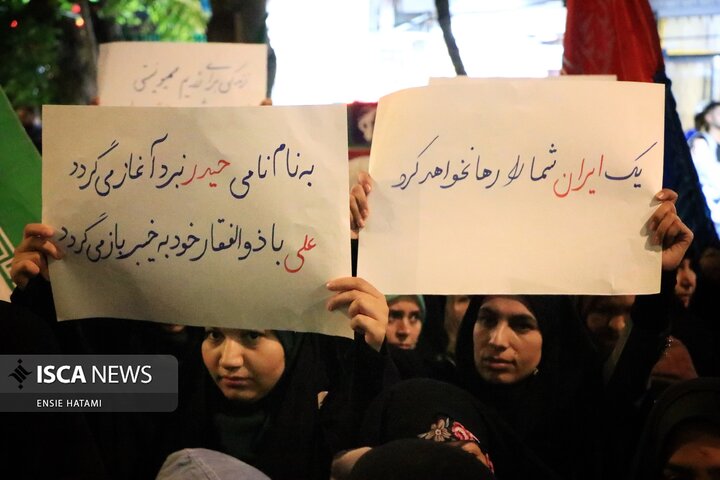 به نام نامی حیدر نبرد آغاز می‌گردد
علی با ذوالفقار خود به خیبر باز می‌گردد
یک ایران شما را رها نخواهد کرد
ISCA NEWS
ENSIE HATAMI